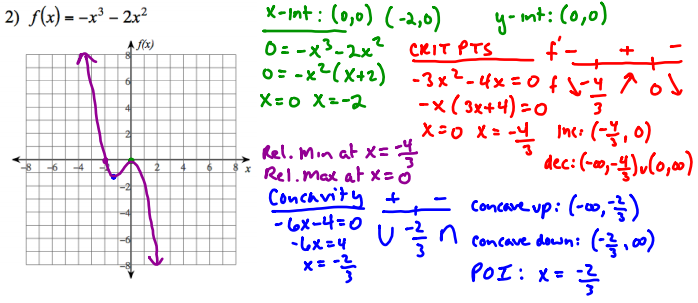 2) f(x) = −x³ − 2x²
f(x)
8
6
4
2
−8 −6 −4 −2 2 4 6 8 x
−2
−4
−6
−8
x-int: (0,0) (-2,0)
0 = -x³-2x²
0 = -x²(x+2)
x=0 x=-2
y-int: (0,0)
CRIT PTS
-3x²-4x=0
-x(3x+4)=0
x=0 x=-4/3
f' - + -
f ↓ -4/3 ↑ 0 ↓
inc: (-4/3, 0)
dec: (-∞,-4/3)∪(0,∞)
Rel. Min at x=-4/3
Rel. Max at x=0
Concavity
-6x-4=0
-6x=4
x=-2/3
+ -
∪ -2/3 ∩
concave up: (-∞,-2/3)
concave down: (-2/3, ∞)
POI: x = -2/3